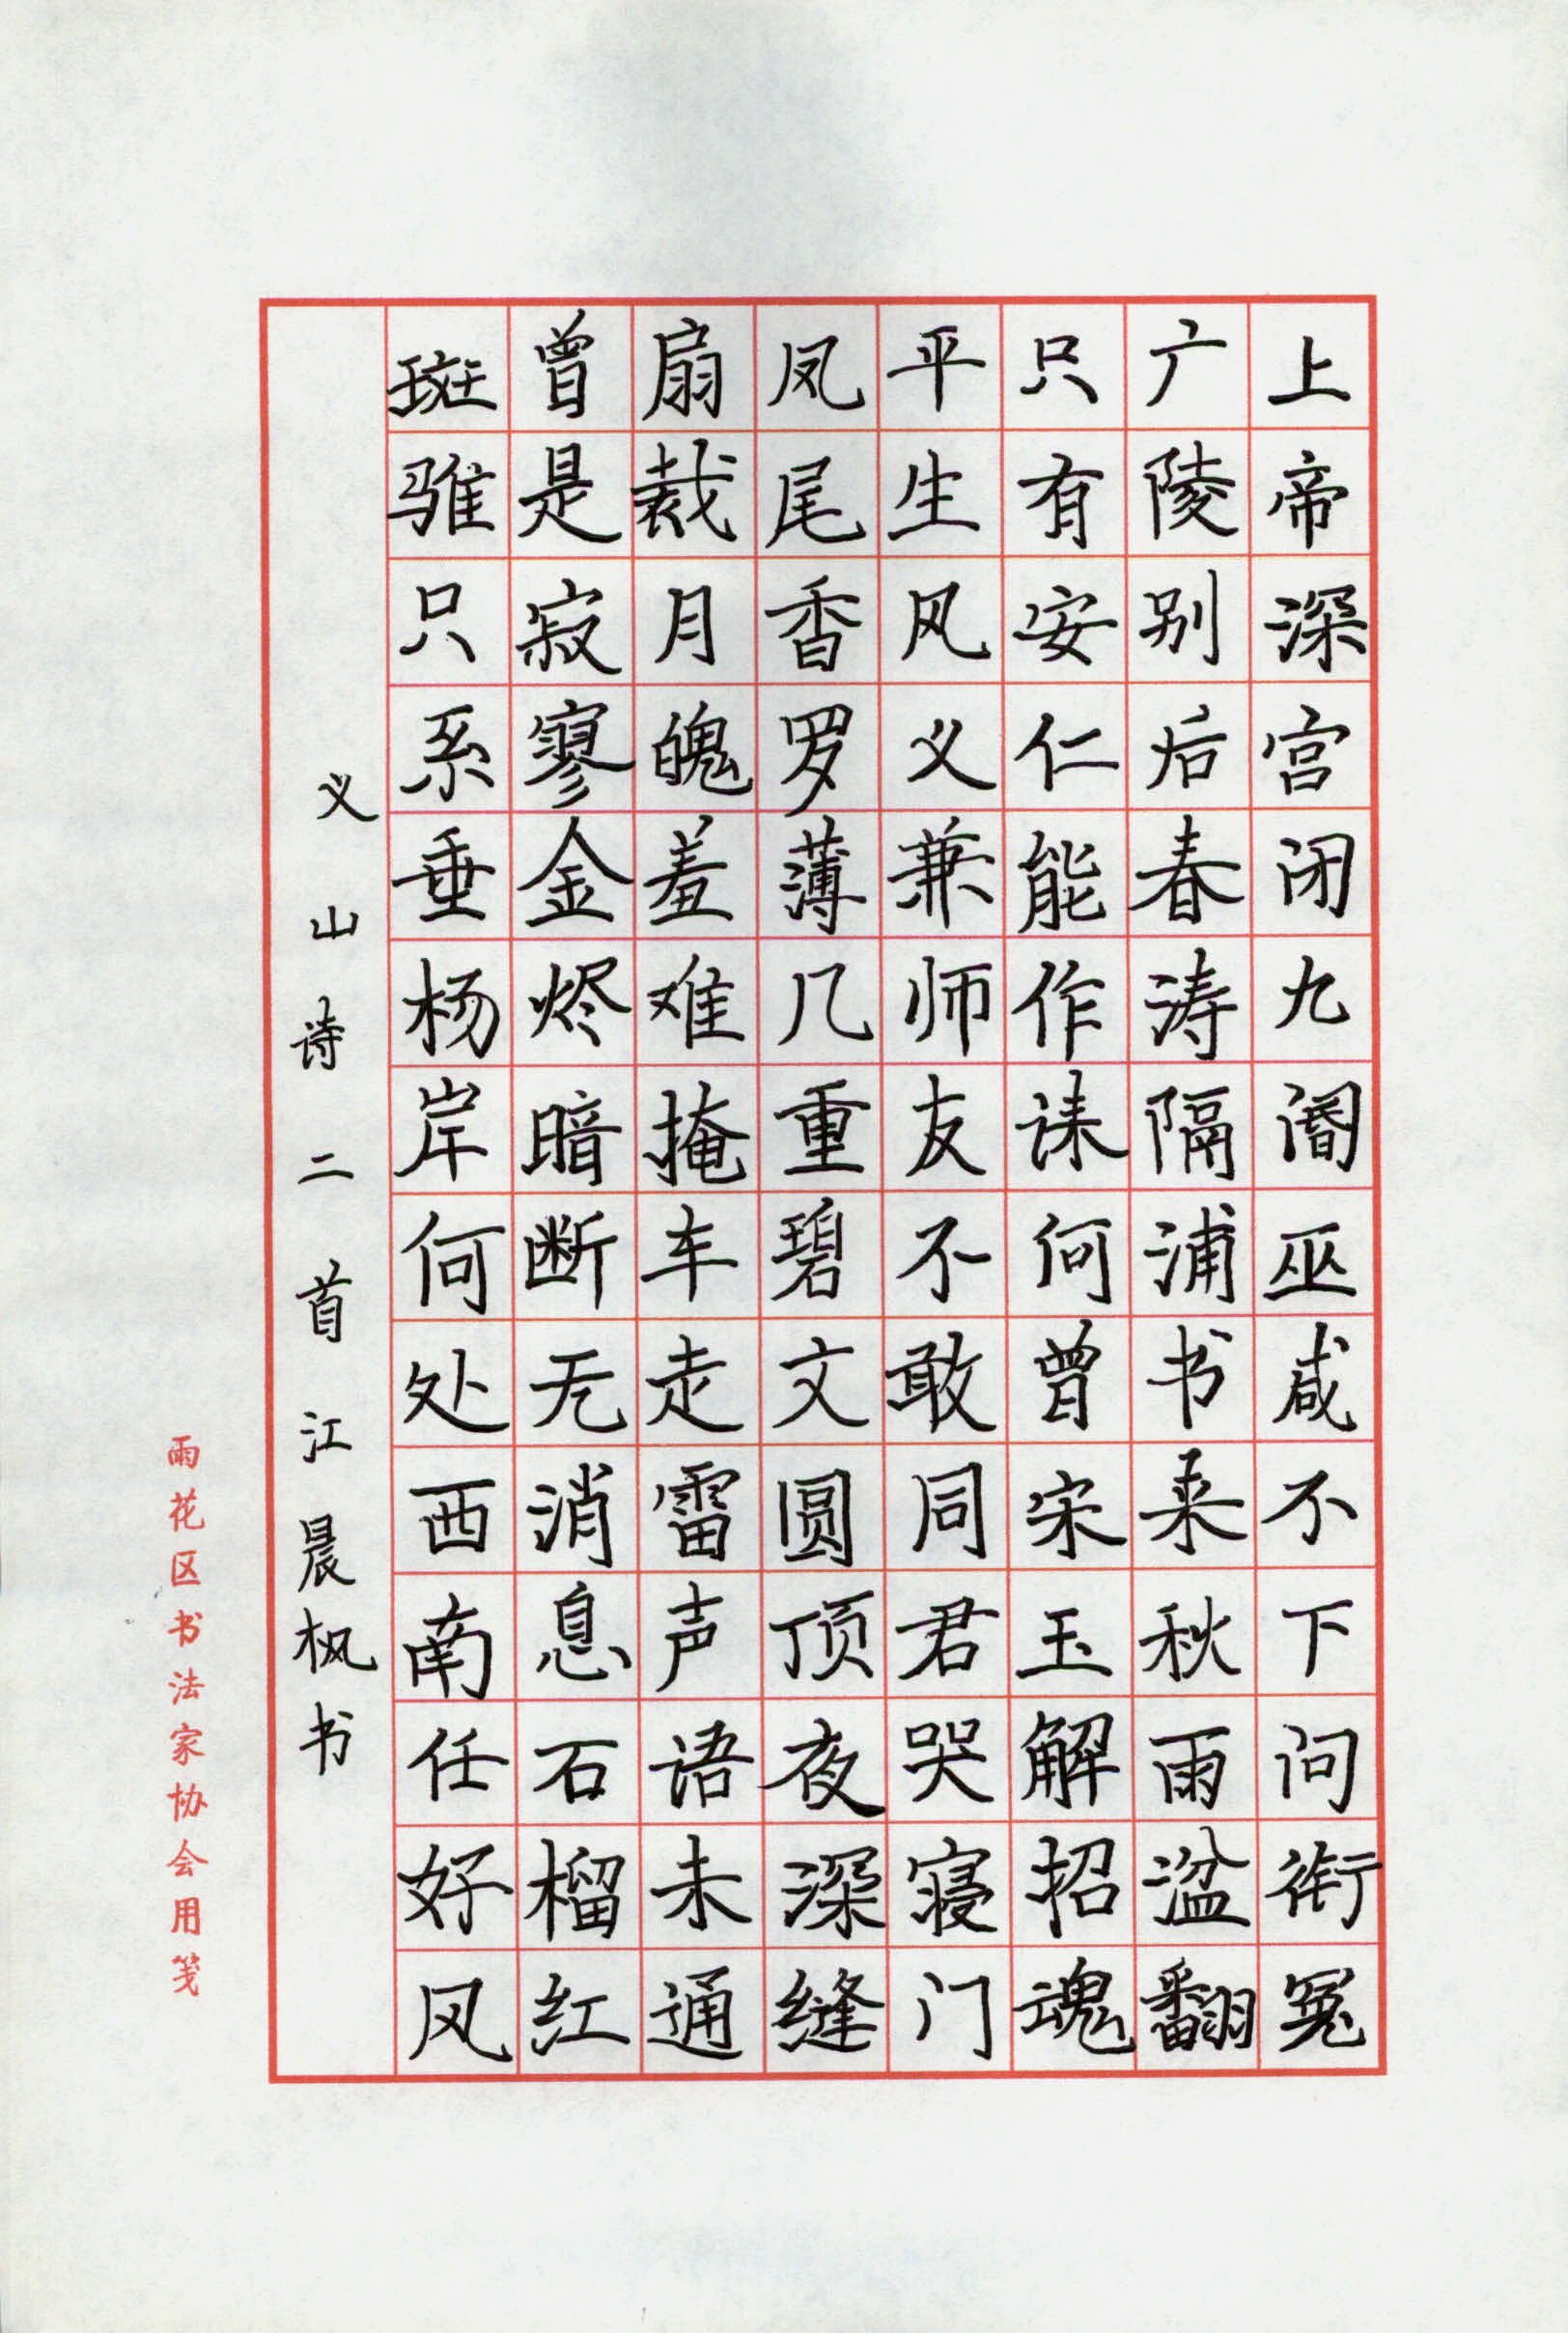 上帝深宫闭九阍巫咸不下问衔冤
广陵别后春涛隔浦书来秋雨湓翻
只有安仁能作诔何曾宋玉解招魂
平生风义兼师友不敢同君哭寝门
凤尾香罗薄几重碧文圆顶夜深缝
扇裁月魄羞难掩车走雷声语未通
曾是寂寥金烬暗断无消息石榴红
斑骓只系垂杨岸何处西南任好风
义山诗二首江晨枫书
雨花区书法家协会用笺